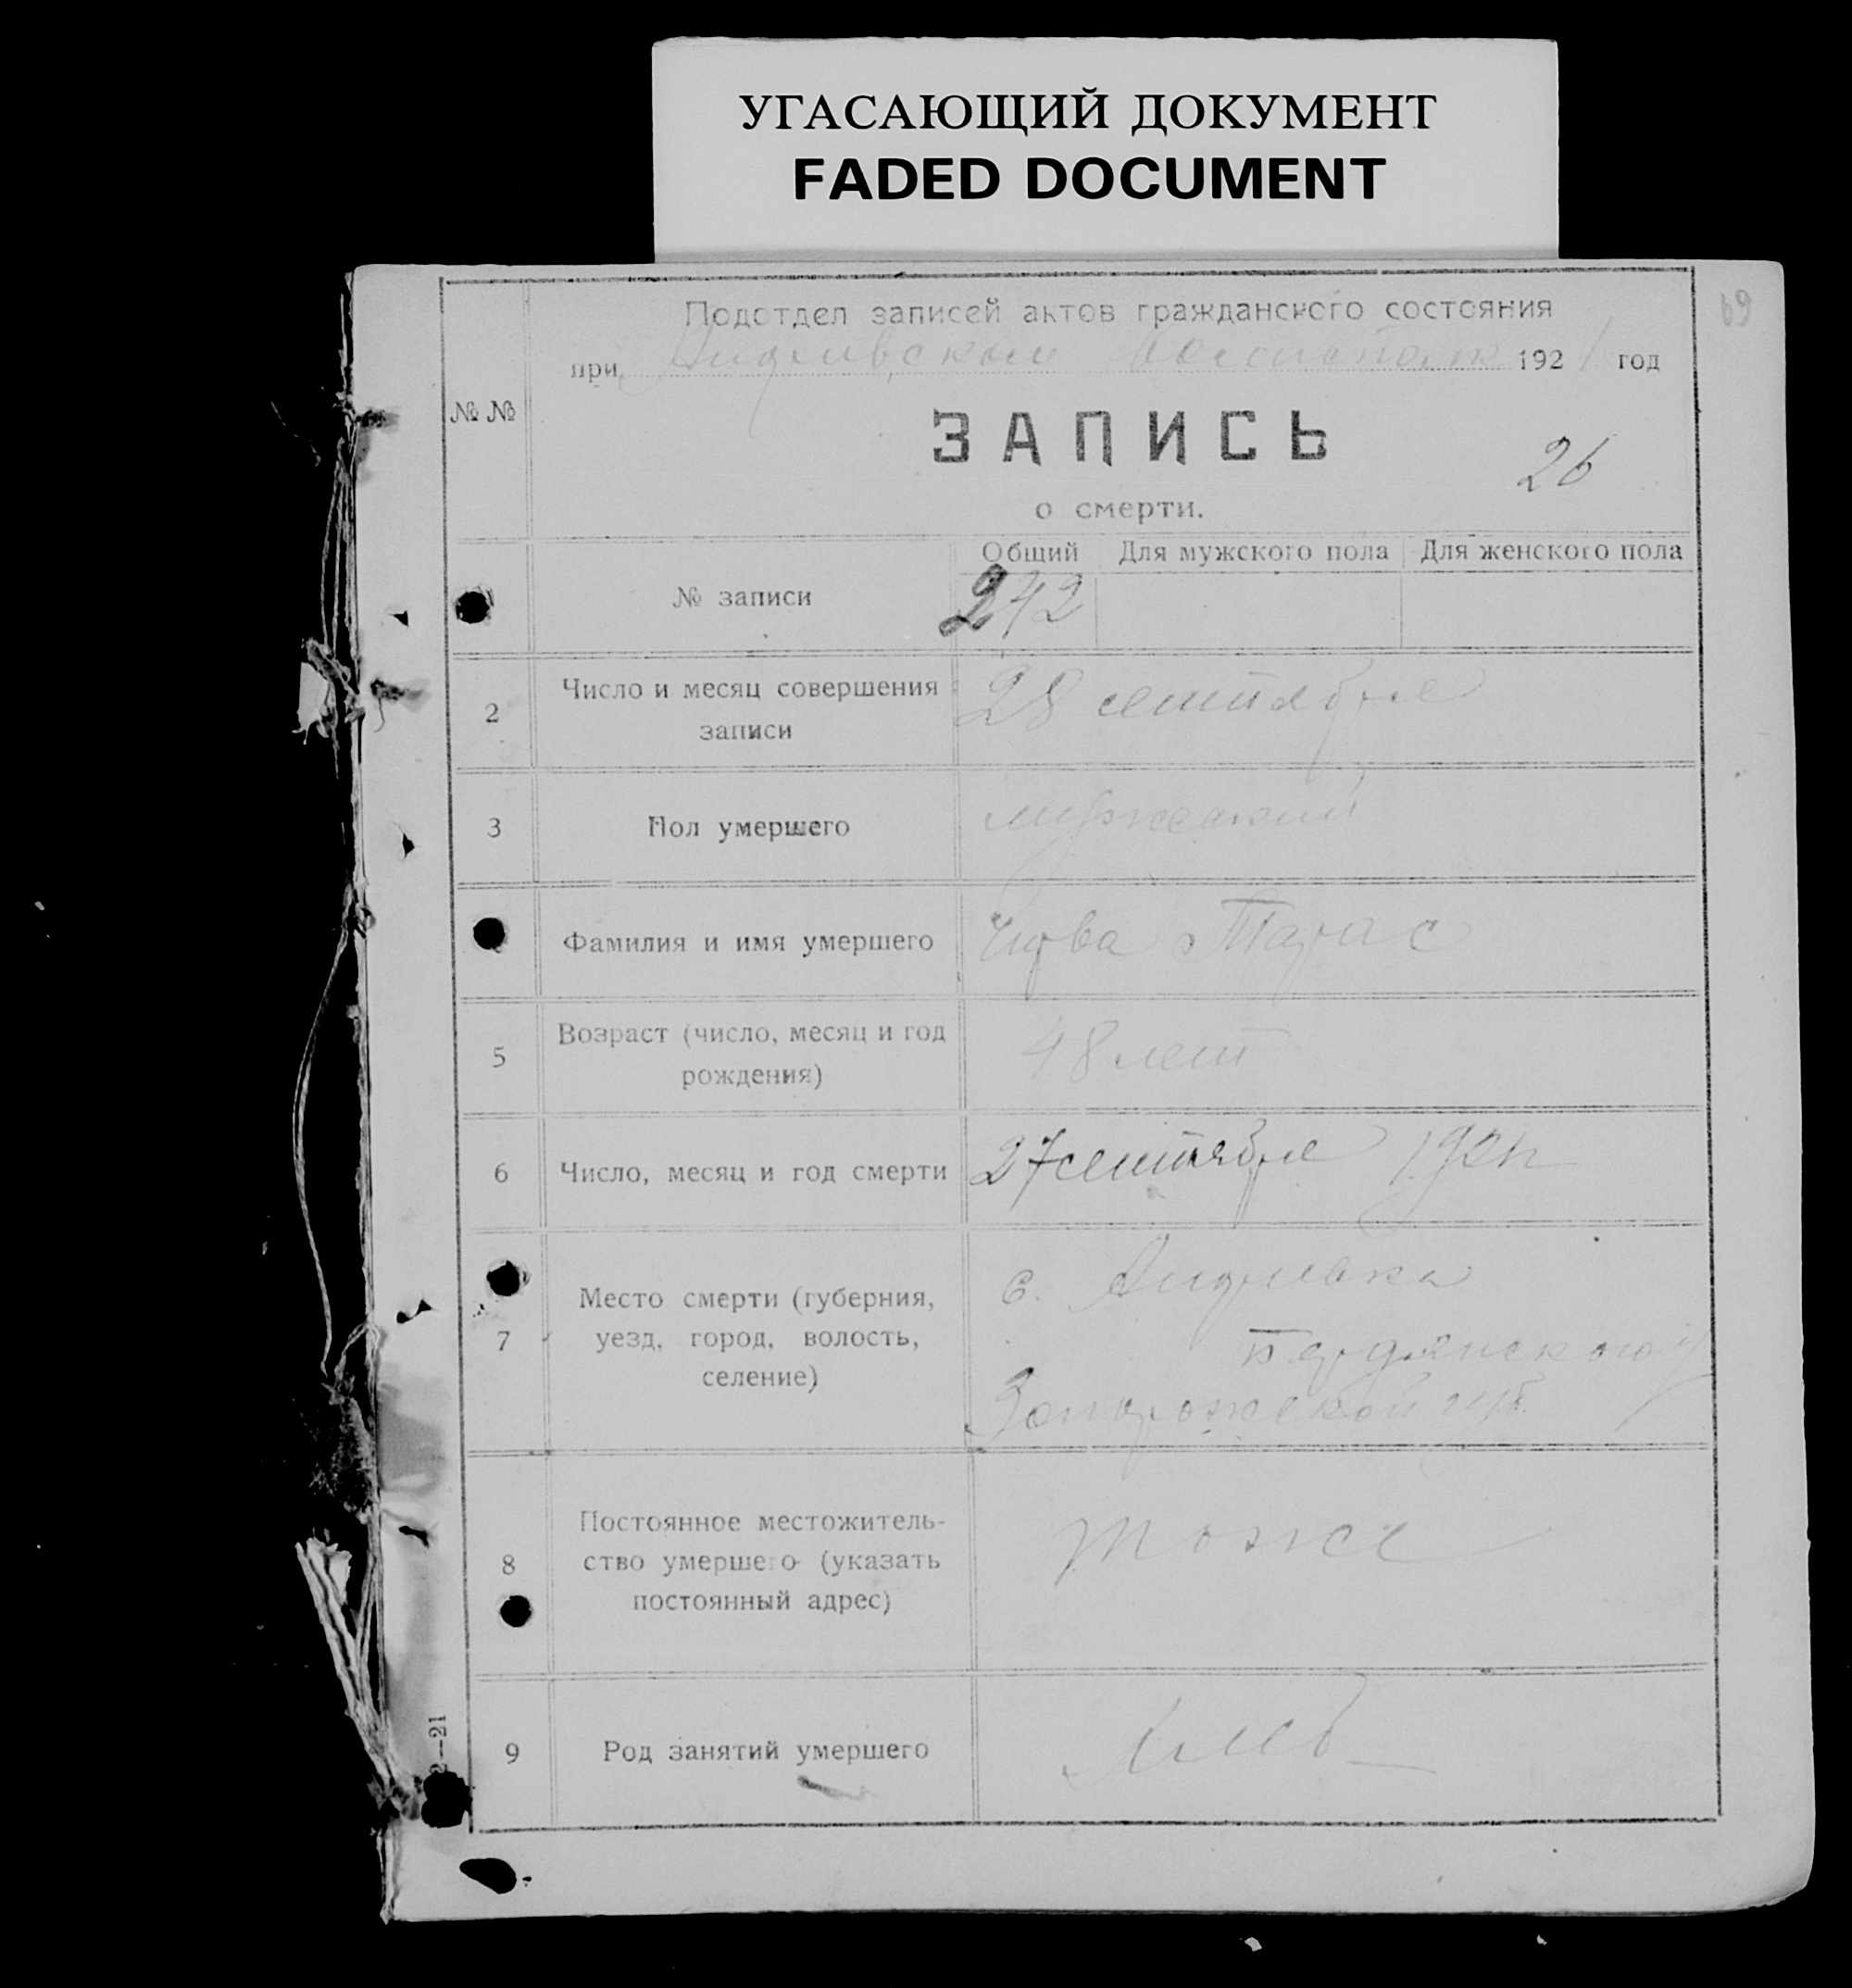 УГАСАЮЩИЙ ДОКУМЕНТ
FADED DOCUMENT
69
Подотдел записей актов гражданского состояния
при 192 1 год
№ №
ЗАПИСЬ
26
о смерти.
Общий Для мужского пола Для женского пола
№ записи 242
2 Число и месяц совершения
записи
28 сентября
3 Пол умершего мужской
Фамилия и имя умершего Тарас
5 Возраст (число, месяц и год
рождения)
48 лет
6 Число, месяц и год смерти 27 сентября
7 Место смерти (губерния,
уезд, город, волость,
селение)
с. Андревка
Бердянского у
Запорожской губ.
8 Постоянное местожитель-
ство умершего (указать
постоянный адрес)
тоже
9 Род занятий умершего
2—21